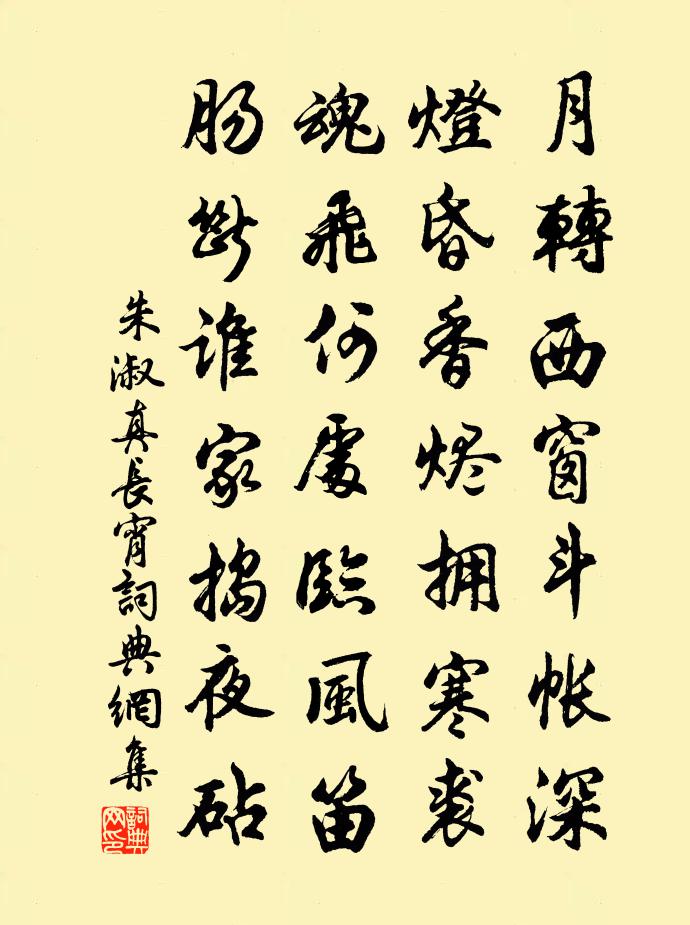 月轉西窗斗帳深
燈昏香烬拥寒裘
魂飛何處臨風笛
肠斷誰家捣夜砧
朱淑真長宵詞典網集
詞典网印